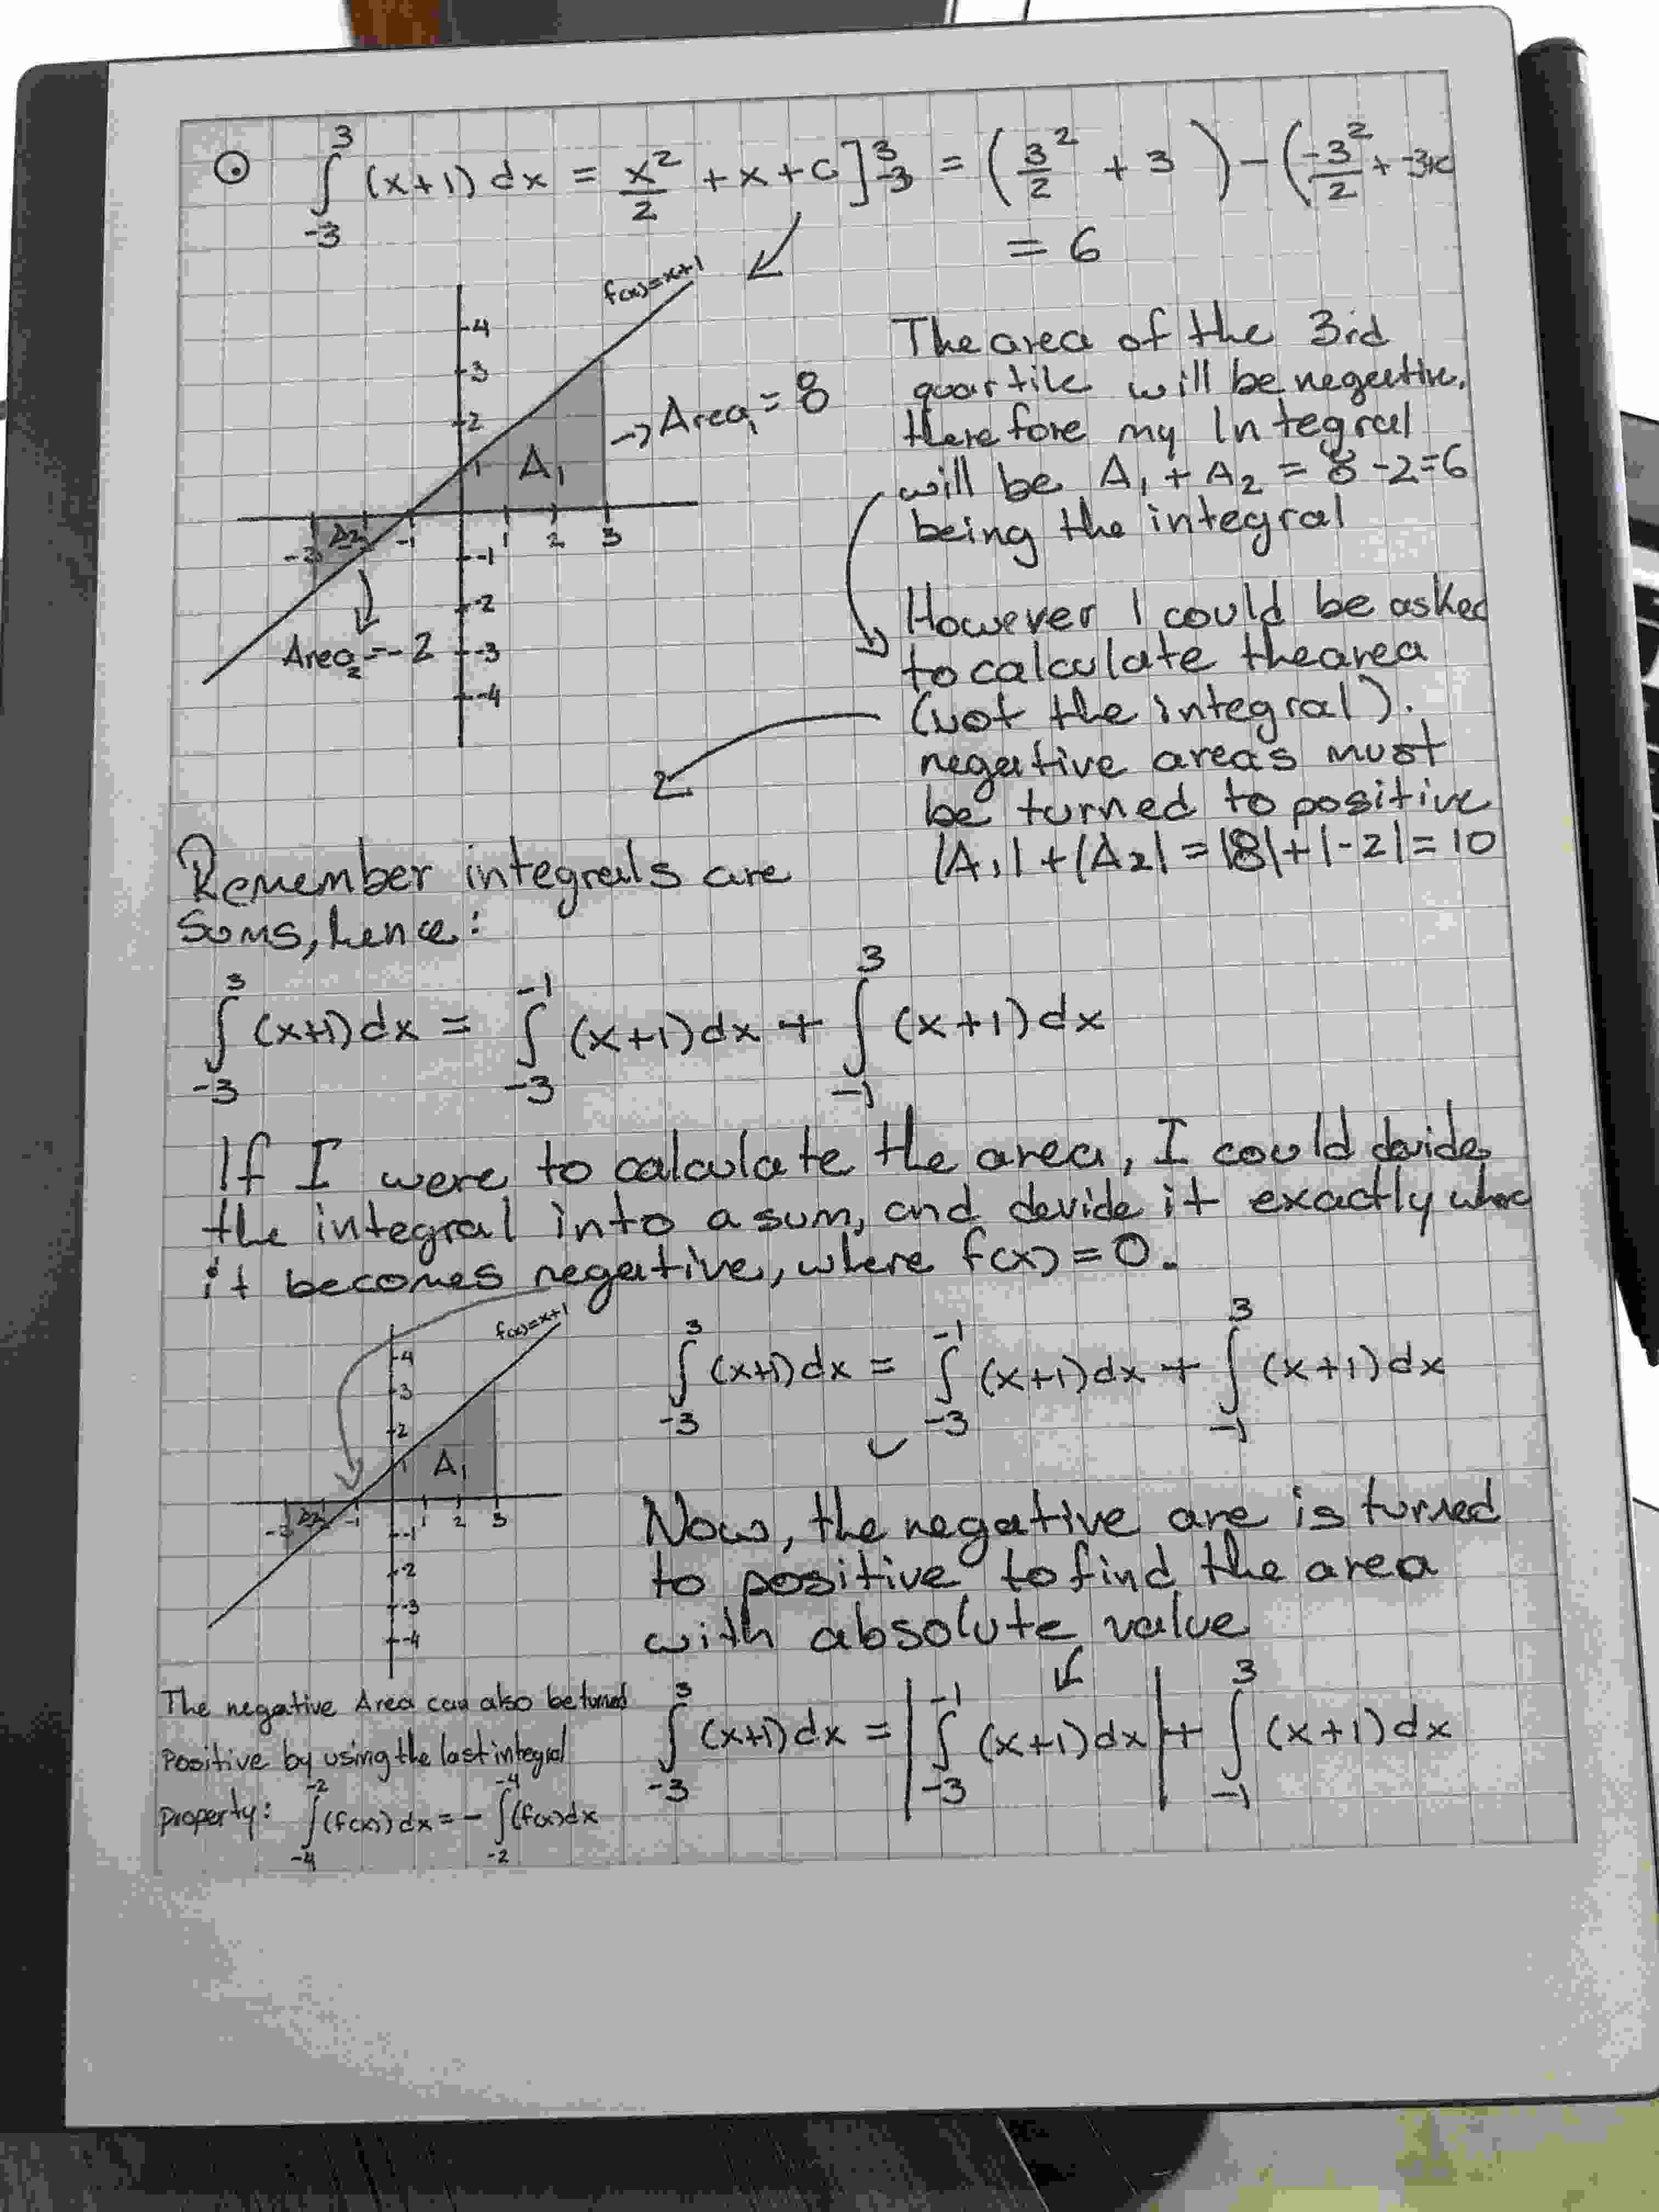 ∫_{-3}^{3} (x+1) dx = x²/2 + x + C]_{-3}^{3} = (3²/2 + 3) - (-3²/2 + -3+c
= 6
f(x)=x+1
4
3
2
1
A₁
→ Area₁ = 8
A2
-3
-1
1
2
3
-1
-2
-3
-4
Area₂ = -2
The area of the 3rd
quartile will be negative,
therefore my Integral
will be A₁ + A₂ = 8 -2=6
being the integral
However I could be asked
to calculate the area
(not the integral).
negative areas must
be turned to positive
|A₁| + |A₂| = |8|+|-2| = 10
Remember integrals are
Sums, hence:
∫_{-3}^{3} (x+1) dx = ∫_{-3}^{-1} (x+1) dx + ∫_{-1}^{3} (x+1) dx
If I were to calculate the area, I could devide
the integral into a sum, and devide it exactly where
it becomes negative, where f(x) = 0.
f(x)=x+1
4
3
2
1
A₁
A2
-3
-1
1
2
3
-1
-2
-3
-4
∫_{-3}^{3} (x+1) dx = ∫_{-3}^{-1} (x+1) dx + ∫_{-1}^{3} (x+1) dx
Now, the negative are is turned
to positive to find the area
with absolute value
∫_{-3}^{3} (x+1) dx = |∫_{-3}^{-1} (x+1) dx| + ∫_{-1}^{3} (x+1) dx
The negative Area can also be turned
Positive by using the last integral
Property: ∫_{-4}^{-2} (f(x)) dx = - ∫_{-2}^{-4} (f(x) dx